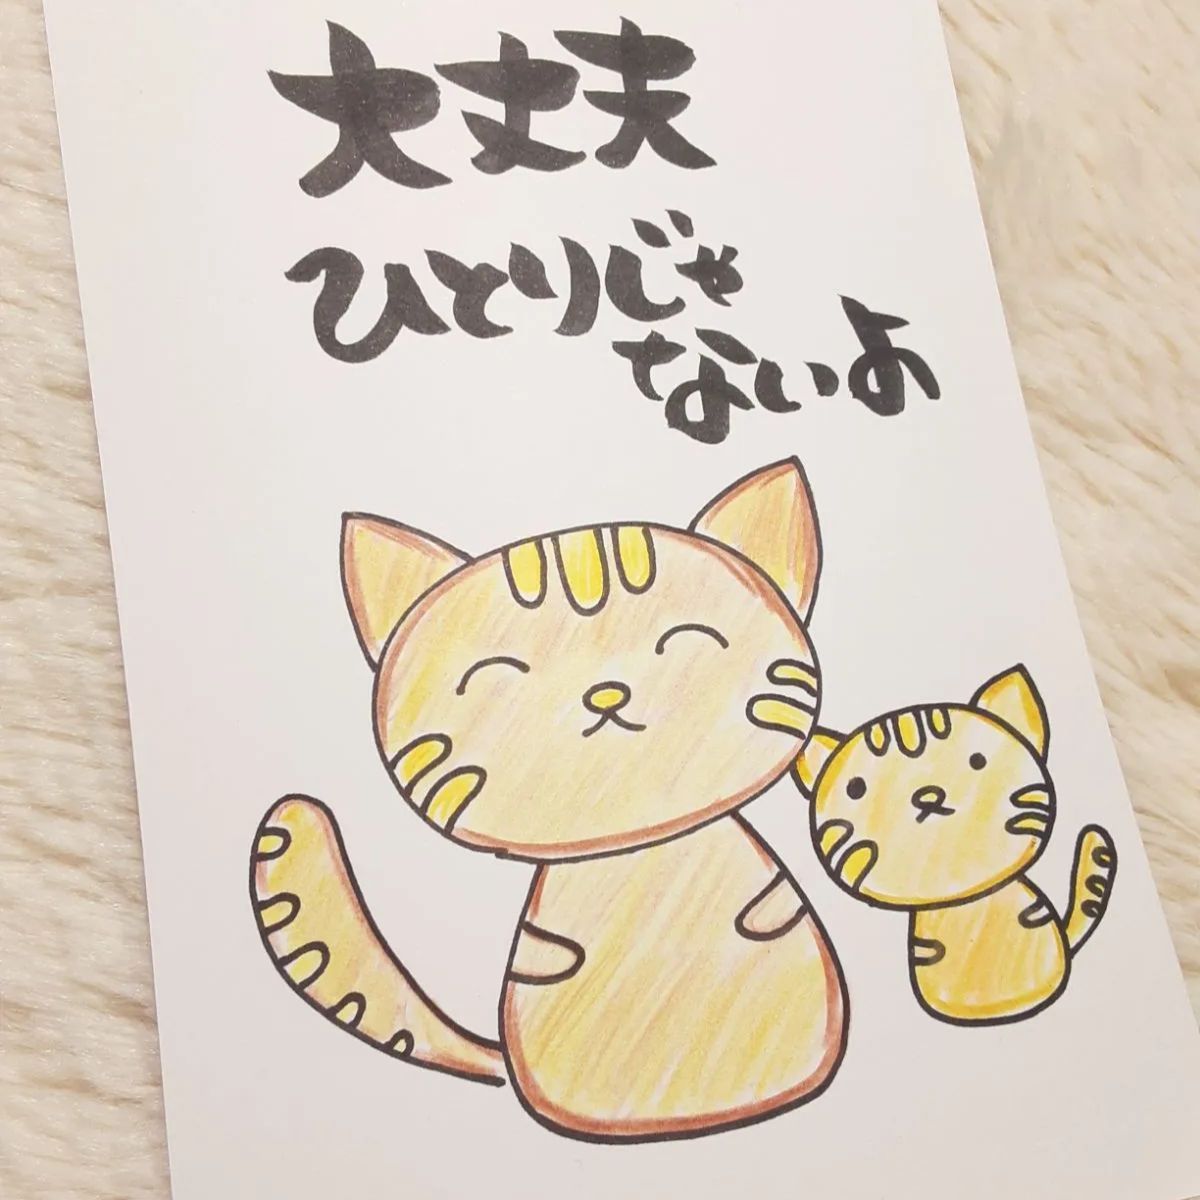 大丈夫
ひとりじゃ
ないよ